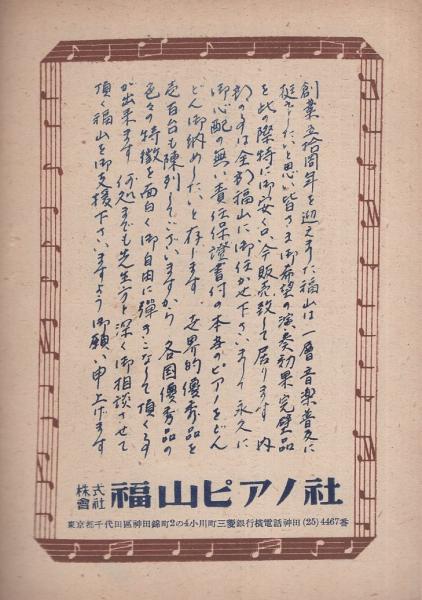 創業五拾周年を迎えました福山は一層音楽普及に
挺身したいと思い皆さま御希望の演奏効果完璧品
を此の際特に御安く只今販売致して居ります 内
部の事は全部福山に御任かせ下さいまして永久に
御心配の無い責任保證書付の本当のピアノをどん
どん御納めしたいと存じます 世界的優秀品を
壱百台も陳列してございますから 各国優秀品の
色々の特徴を面白く御自由に弾きこなして頂くる
が出来ます 何処までも先生方と深く御相談させて
頂く福山を御支援下さいますよう御願い申上げます
株式會社 福山ピアノ社
東京都千代田區神田錦町2の4小川町三菱銀行横電話神田(25)4467番